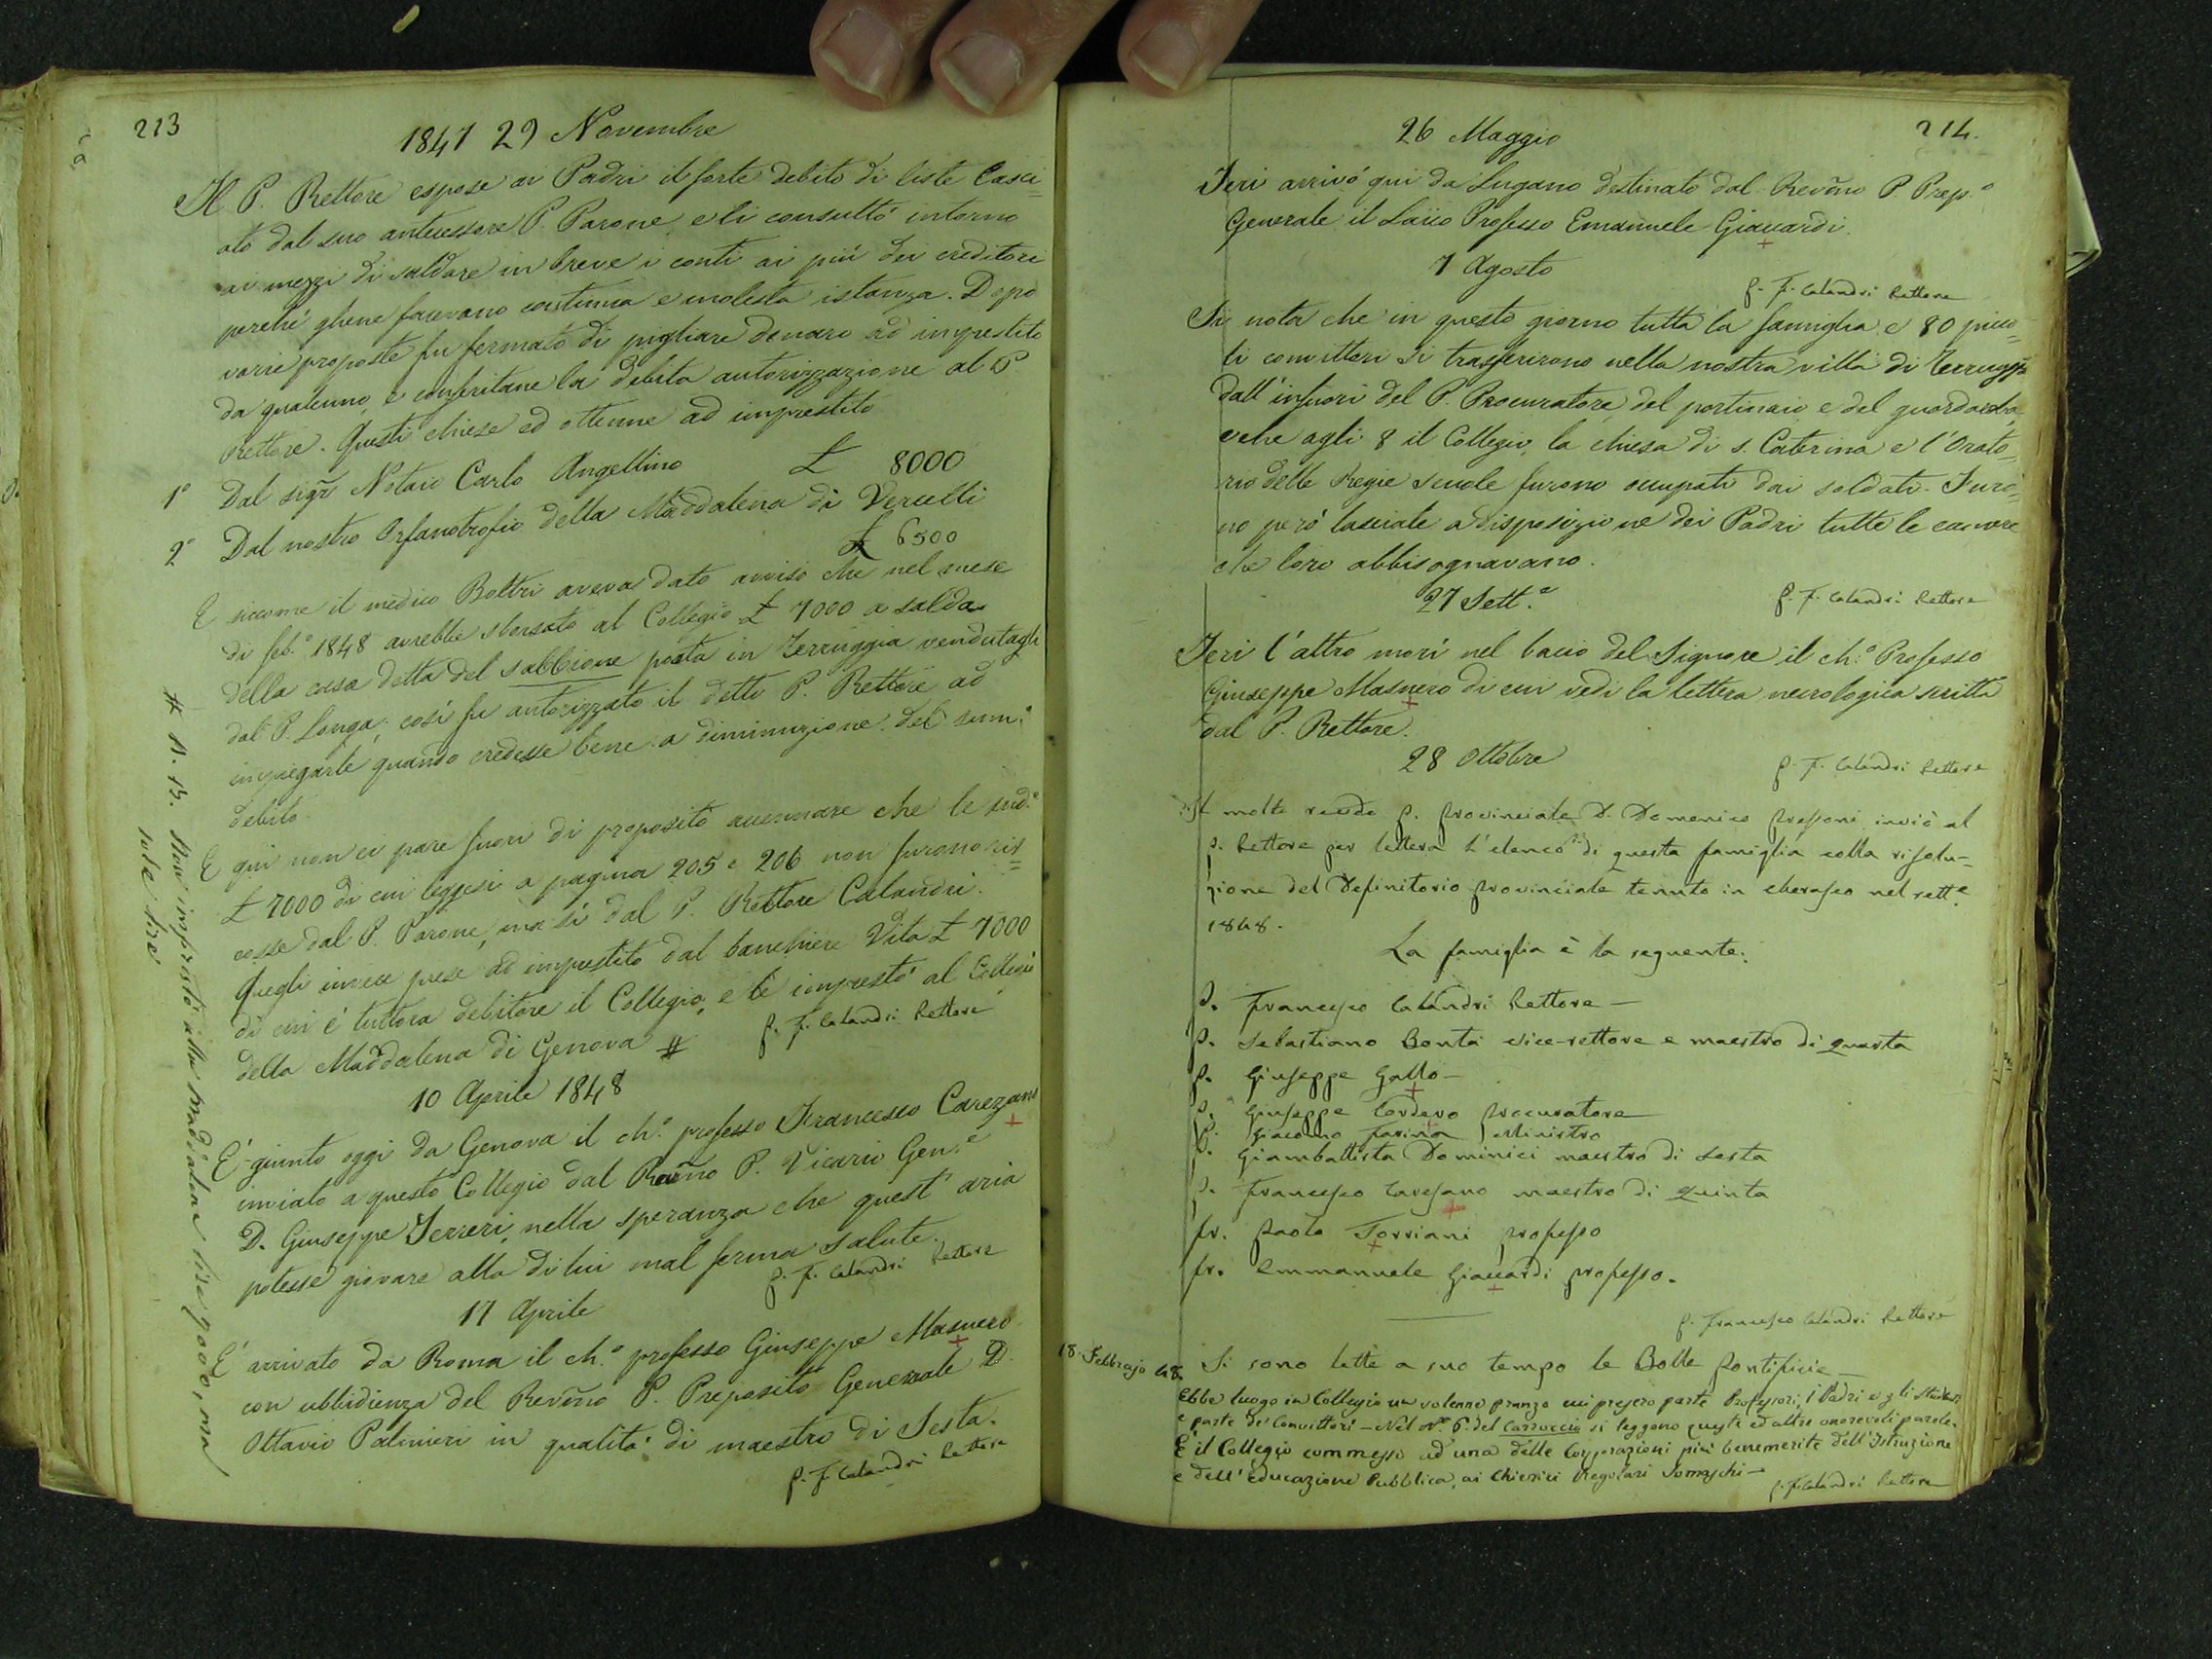 213
1847 29 Novembre
Il P. Rettore espose ai Padri il forte debito di liste lasci=
ato dal suo antecessore P. Parone, e li consultò intorno
ai mezzi di saldare in breve i conti ai più dei creditori
perchè gliene facevano continua e molesta istanza. Dopo
varie proposte fu fermato di pigliare denaro ad imprestito
da qualcuno, e conferitane la debita autorizzazione al P.
Rettore. Questi chiese ed ottenne ad imprestito
1° Dal sigr Notaio Carlo Angellino £ 8000
2° Dal nostro Orfanotrofio della Maddalena di Vercelli
£ 6500
E siccome il medico Boltri aveva dato avviso che nel mese
di feb.° 1848 avrebbe sborsato al Collegio £ 7000 a saldo
della casa detta del sabbione posta in Terruggia vendutagli
dal P. Longa; così fu autorizzato il detto P. Rettore ad
impiegarle quando credesse bene a diminuzione del sum.°
debito.
E qui non ci pare fuori di proposito accennare che le sud.e
£ 7000 di cui leggesi a pagina 205 e 206 non furono ris=
cosse dal P. Parone, ma sì dal P. Rettore Calandri.
Quegli invece prese ad imprestito dal banchiere Vita £ 7000
di cui è tuttora debitore il Collegio, e le imprestò al Collegio
della Maddalena di Genova #
P. F. Calandri Rettore
# N. B. Non imprestò alla Maddalena lire 7000, ma
sole lire
10 Aprile 1848
È giunto oggi da Genova il ch.° professo Francesco Carezano
inviato a questo Collegio dal Revm̃o P. Vicario Gen.e
D. Giuseppe Ferreri, nella speranza che quest' aria
potesse giovare alla di lui mal ferma salute.
P. F. Calandri Rettore
17 Aprile
È arrivato da Roma il ch.° professo Giuseppe Masnero
con ubbidienza del Revm̃o P. Preposito Generale D.
Ottavio Palmieri in qualità di maestro di Sesta.
P. F. Calandri Rettore
214.
26 Maggio
Ieri arrivò qui da Lugano destinato dal Revm̃o P. Prep.°
Generale il Laico Professo Emanuele Giaccardi.
P. F. Calandri Rettore
7 Agosto
Si nota che in questo giorno tutta la famiglia e 80 picco=
li convittori si trasferirono nella nostra villa di Terruggia
dall'infuori del P. Procuratore del portinaio e del guardaroba,
e che agli 8 il Collegio, la chiesa di s. Caterina e l'Orato=
rio delle Regie scuole furono occupati dai soldati. Furo=
no però lasciate a disposizione dei Padri tutte le camere
che loro abbisognavano.
P. F. Calandri Rettore
27 Sett.e
Ieri l'altro morì nel bacio del Signore il ch.° Professo
Giuseppe Masnero di cui vedi la lettera necrologica scritta
dal P. Rettore.
P. F. Calandri Rettore
28 Ottobre
Il molto revdo P. Provinciale D. Domenico Pressoni inviò al
P. Rettore per lettera l'elenco di questa famiglia colla risolu-
zione del Definitorio Provinciale tenuto in Cherasco nel sett.e
1848.
La famiglia è la seguente:
P. Francesco Calandri Rettore —
P. Sebastiano Bonta vice-rettore e maestro di quarta
P. Giuseppe Gallo —
P. Giuseppe Cordero Procuratore
P. Giacomo Farina Ministro
P. Giambattista Dominici maestro di sesta
P. Francesco Caresano maestro di quinta
fr. Paolo Torriani professo
fr. Emmanuele Giaccardi professo.
P. Francesco Calandri Rettore
Si sono lette a suo tempo le Bolle Pontificie —
18. Febbrajo 48.
Ebbe luogo in Collegio un solenne pranzo cui presero parte Professori, i Padri e gli studenti
e parte de' Convittori — Nel N.° 6. del Carroccio si leggono queste ed altre onorevoli parole.
È il Collegio commesso ad una delle Corporazioni più benemerite dell'Istruzione
e dell'educazione Pubblica, ai Chierici Regolari Somaschi —
P. F. Calandri Rettore